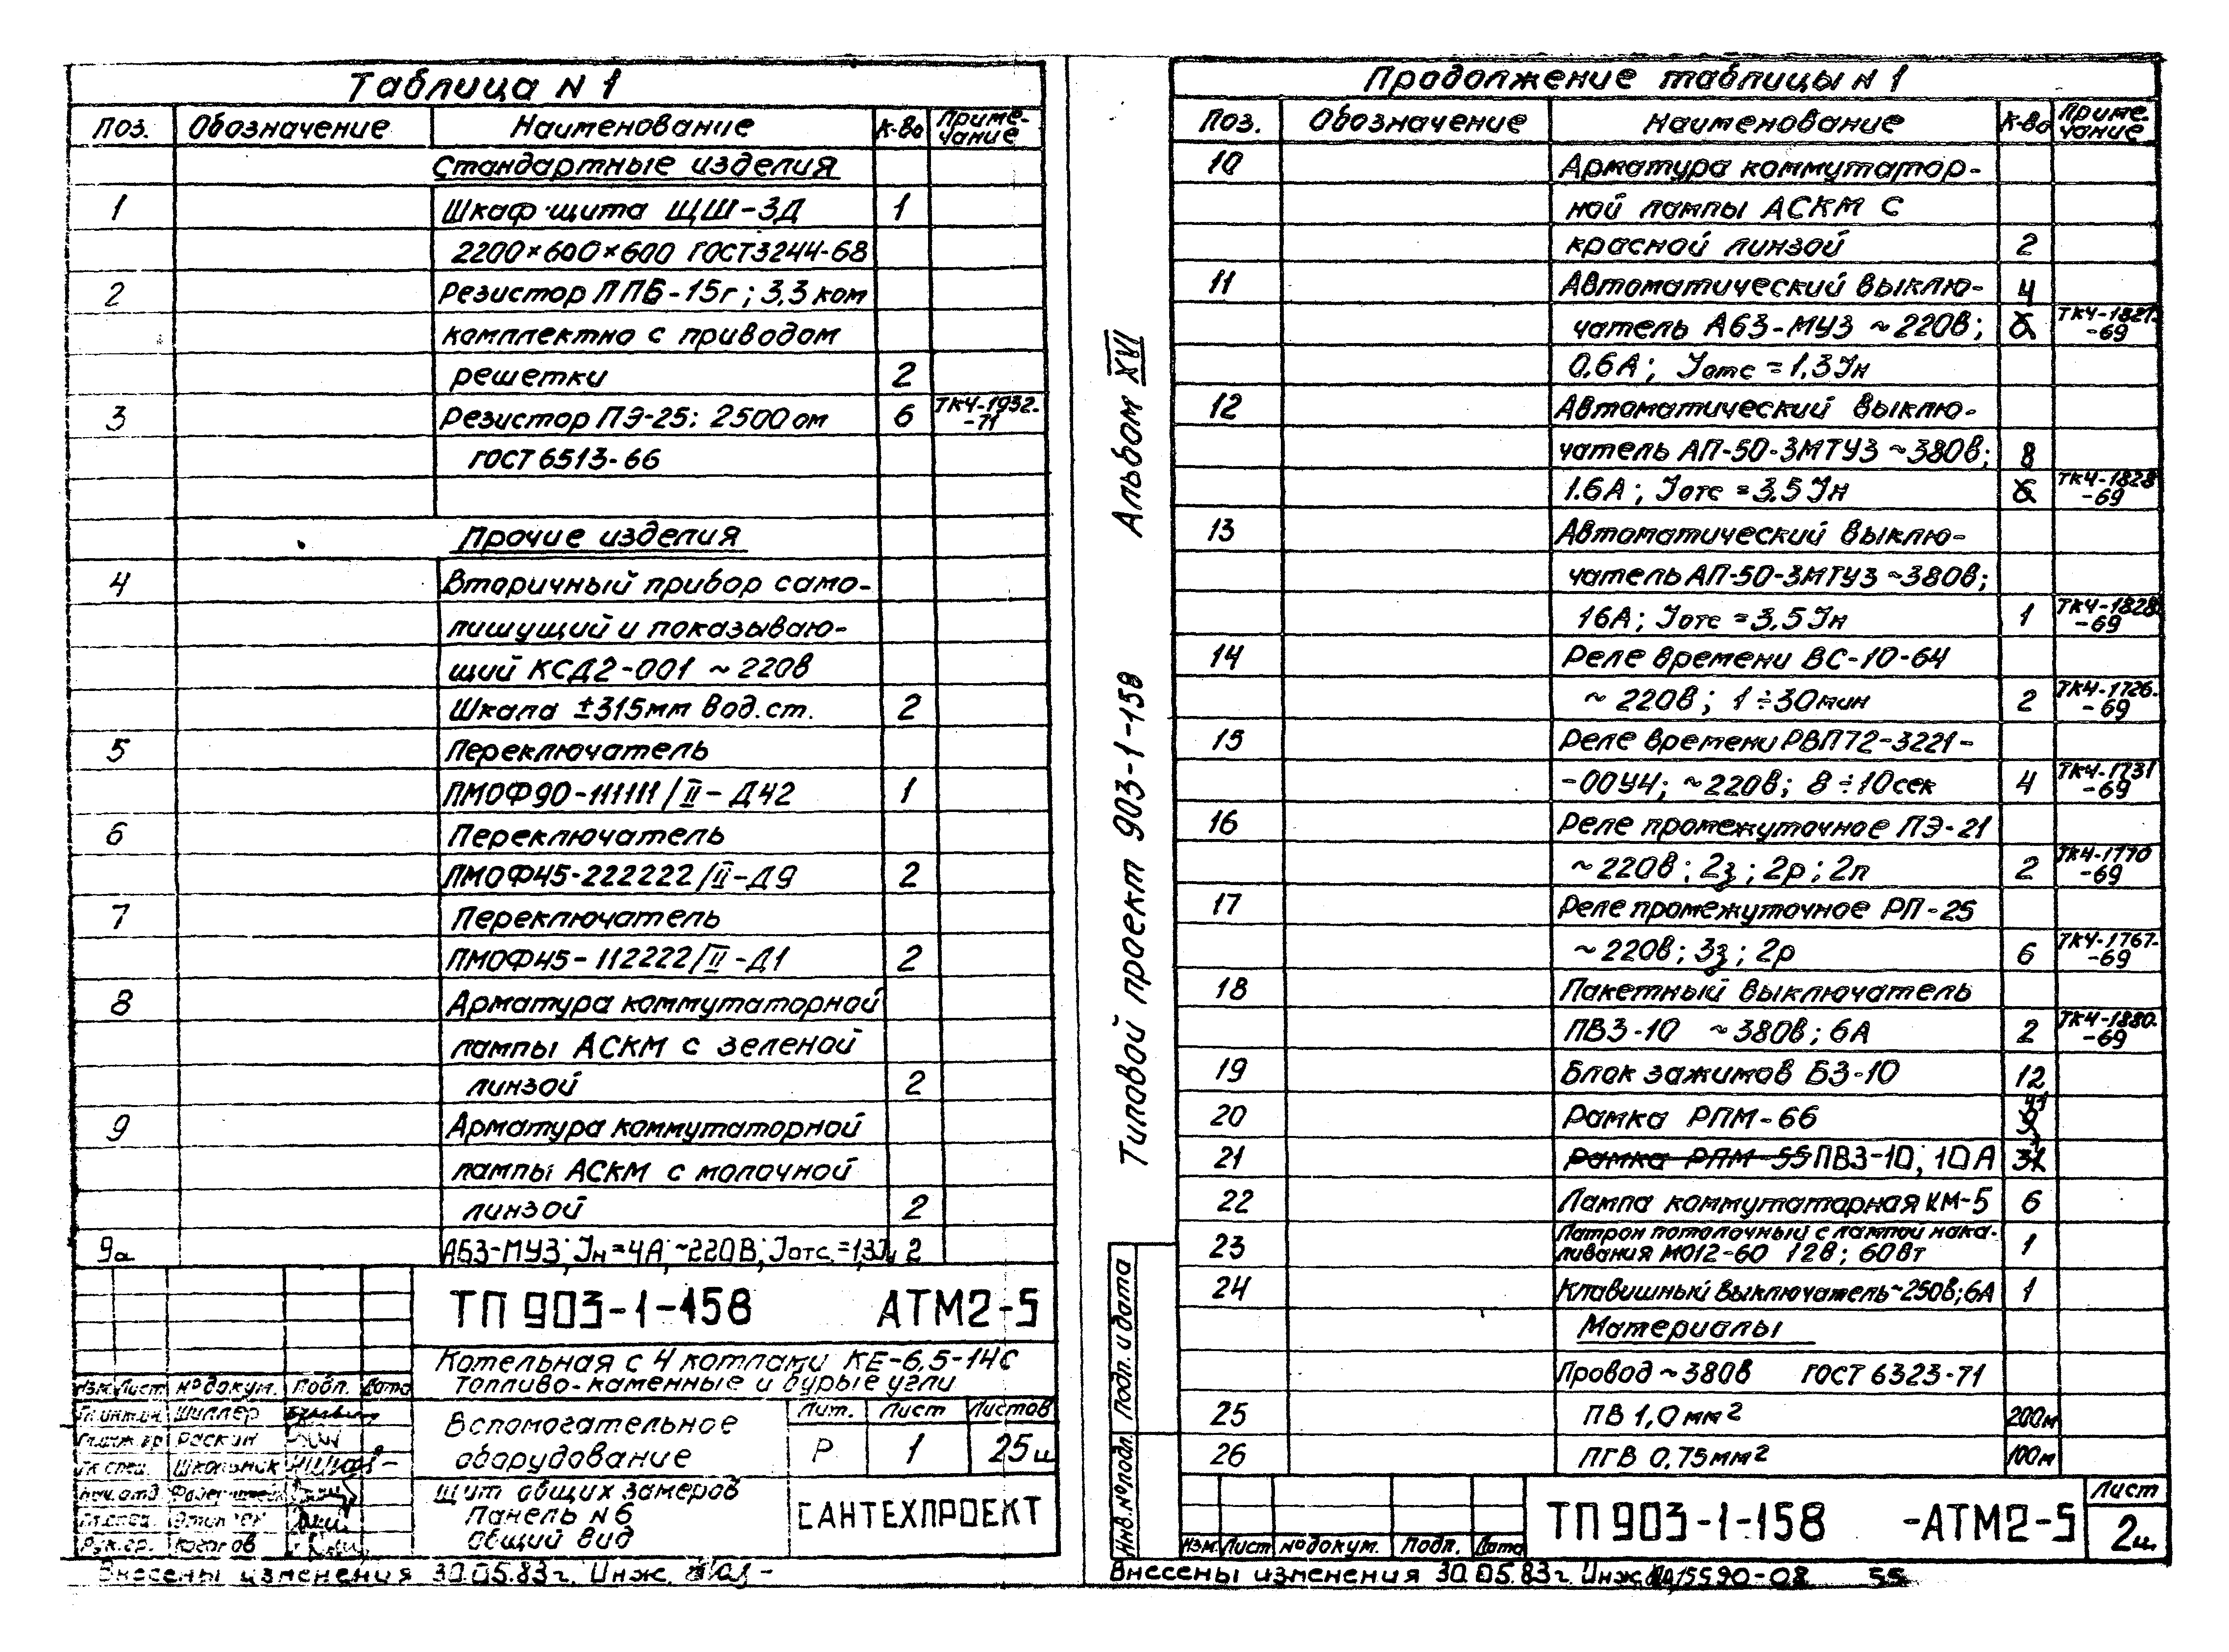 Таблица N 1
Поз. Обозначение Наименование К-во Приме-чание
Стандартные изделия
1 Шкаф щита ЩШ-ЗД 1
2200×600×600 ГОСТ3244-68
2 Резистор ППБ-15г; 3,3 ком
комплектно с приводом
решетки 2
3 Резистор ПЭ-25: 2500 ом 6 ТКЧ-1932.-71
ГОСТ 6513-66
Прочие изделия
4 Вторичный прибор само-
пишущий и показываю-
щий КСД2-001 ~ 220в
Шкала ±315мм вод.ст. 2
5 Переключатель
ПМОФ90-111111/II-Д42 1
6 Переключатель
ПМОФ45-222222/II-Д9 2
7 Переключатель
ПМОФ45-112222/II-Д1 2
8 Арматура коммутаторной
лампы АСКМ с зеленой
линзой 2
9 Арматура коммутаторной
лампы АСКМ с молочной
линзой 2
9а АБЗ-МУЗ; Iн=4А; ~220В; Iотс.=1,3Iн 2
ТП 903-1-158 АТМ2-5
Котельная с 4 котлами КЕ-6,5-14С
топливо-каменные и бурые угли
Изм. Лист № докум. Подп. Дата
Шиллер
Раскин
Школьник
Вспомогательное
оборудование
Лит. Лист Листов
Р 1 25и
Щит общих замеров
Панель N6
Общий вид
САНТЕХПРОЕКТ
Рук.гр.
Внесены изменения 30.05.83г. Инж.
Альбом XVI
Типовой проект 903-1-158
Подп. и дата
Инв. № подл.
Продолжение таблицы N 1
Поз. Обозначение Наименование К-во Приме-чание
10 Арматура коммутатор-
ной лампы АСКМ с
красной линзой 2
11 Автоматический выклю- 4
чатель АБЗ-МУЗ ~220в; ТКЧ-1827.-69
0,6А; Iотс = 1,3Iн
12 Автоматический выклю-
чатель АП-50-3МТУЗ ~380в; 8
1.6А; Iотс = 3.5 Iн 6 ТКЧ-1828-69
13 Автоматический выклю-
чатель АП-50-3МТУЗ ~380в;
16А; Iотс = 3,5 Iн 1 ТКЧ-1828-69
14 Реле времени ВС-10-64
~ 220в; 1÷30мин 2 ТКЧ-1726.-69
15 Реле времени РВП72-3221-
-00У4; ~220в; 8÷10сек 4 ТКЧ-1731-69
16 Реле промежуточное ПЭ-21
~220в; 2з; 2р; 2п 2 ТКЧ-1770-69
17 Реле промежуточное РП-25
~220в; 3з; 2р 6 ТКЧ-1767.-69
18 Пакетный выключатель
ПВЗ-10 ~380в; 6А 2 ТКЧ-1880.-69
19 Блок зажимов БЗ-10 12
20 Рамка РПМ-66
21 Рамка РПМ-55 ПВЗ-10; 10А
22 Лампа коммутаторная КМ-5 6
23 Патрон потолочный с лампой нака-
ливания МО12-60 12в; 60Вт 1
24 Клавишный выключатель ~250в; 6А 1
Материалы
Провод ~380в ГОСТ 6323-71
25 ПВ 1,0 мм² 200м
26 ПГВ 0,75мм² 100м
Изм. Лист № докум. Подп. Дата
ТП 903-1-158 -АТМ2-5
Лист
2и.
Внесены изменения 30.05.83г. Инж. 15590-08 55